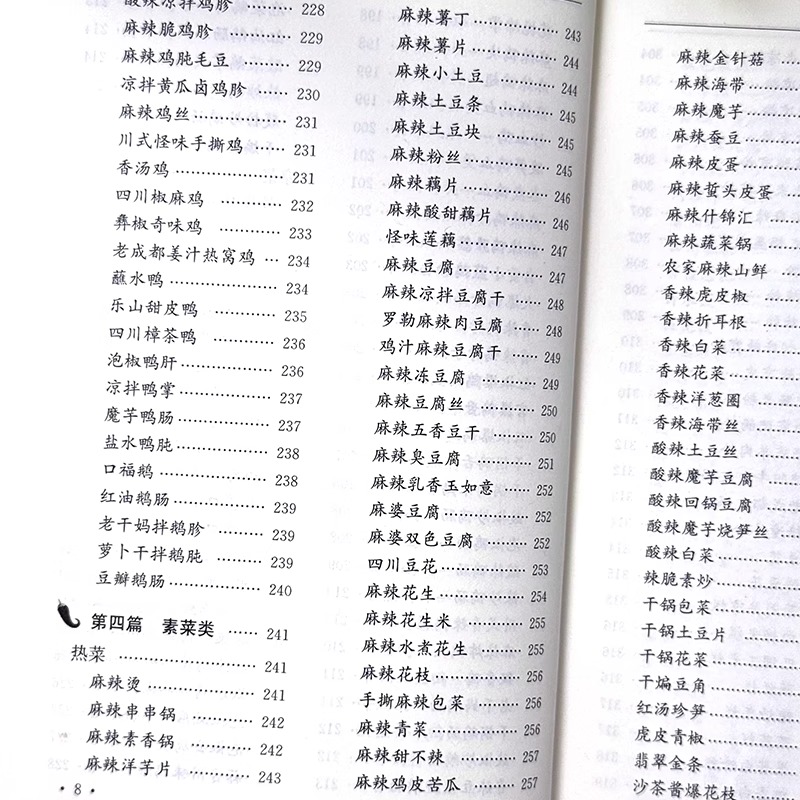 酸辣凉拌鸡胗 228
麻辣脆鸡胗 229
麻辣鸡肫毛豆 229
凉拌黄瓜卤鸡胗 230
麻辣鸡丝 231
川式怪味手撕鸡 231
香汤鸡 231
四川椒麻鸡 232
彝椒奇味鸡 233
老成都姜汁热窝鸡 234
蘸水鸭 234
乐山甜皮鸭 235
四川樟茶鸭 236
泡椒鸭肝 236
凉拌鸭掌 237
魔芋鸭肠 237
盐水鸭肫 238
口福鹅 238
红油鹅肠 239
老干妈拌鹅胗 239
萝卜干拌鹅肫 239
豆瓣鹅肠 240
第四篇 素菜类 241
热菜 241
麻辣烫 241
麻辣串串锅 242
麻辣素香锅 242
麻辣洋芋片 243
· 8 ·
麻辣薯丁 243
麻辣薯片 244
麻辣小土豆 244
麻辣土豆条 245
麻辣土豆块 245
麻辣粉丝 245
麻辣藕片 246
麻辣酸甜藕片 246
怪味莲藕 247
麻辣豆腐 247
麻辣凉拌豆腐干 248
罗勒麻辣肉豆腐 248
鸡汁麻辣豆腐干 249
麻辣冻豆腐 249
麻辣豆腐丝 250
麻辣五香豆干 250
麻辣臭豆腐 251
麻辣乳香玉如意 252
麻婆豆腐 252
麻婆双色豆腐 252
四川豆花 253
麻辣花生 254
麻辣花生米 255
麻辣水煮花生 255
麻辣花枝 256
手撕麻辣包菜 256
麻辣青菜 256
麻辣甜不辣 257
麻辣鸡皮苦瓜 257
麻辣金针菇
麻辣海带
麻辣魔芋
麻辣蚕豆
麻辣皮蛋
麻辣蜇头皮蛋
麻辣什锦汇
麻辣蔬菜锅
农家麻辣山鲜
香辣虎皮椒
香辣折耳根
香辣白菜
香辣花菜
香辣洋葱圈
香辣海带丝
酸辣土豆丝
酸辣魔芋豆腐
酸辣回锅豆腐
酸辣魔芋烧笋丝
酸辣白菜
辣脆素炒
干锅包菜
干锅土豆片
干锅花菜
干煸豆角
红汤珍笋
虎皮青椒
翡翠金条
沙茶酱爆花枝